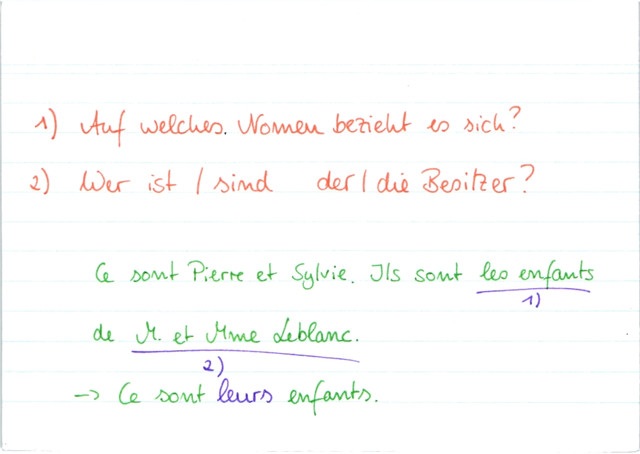 1) Auf welches. Nomen bezieht es sich?
2) Wer ist / sind der / die Besitzer?
Ce sont Pierre et Sylvie. Ils sont les enfants
1)
de M. et Mme Leblanc.
2)
→ Ce sont leurs enfants.